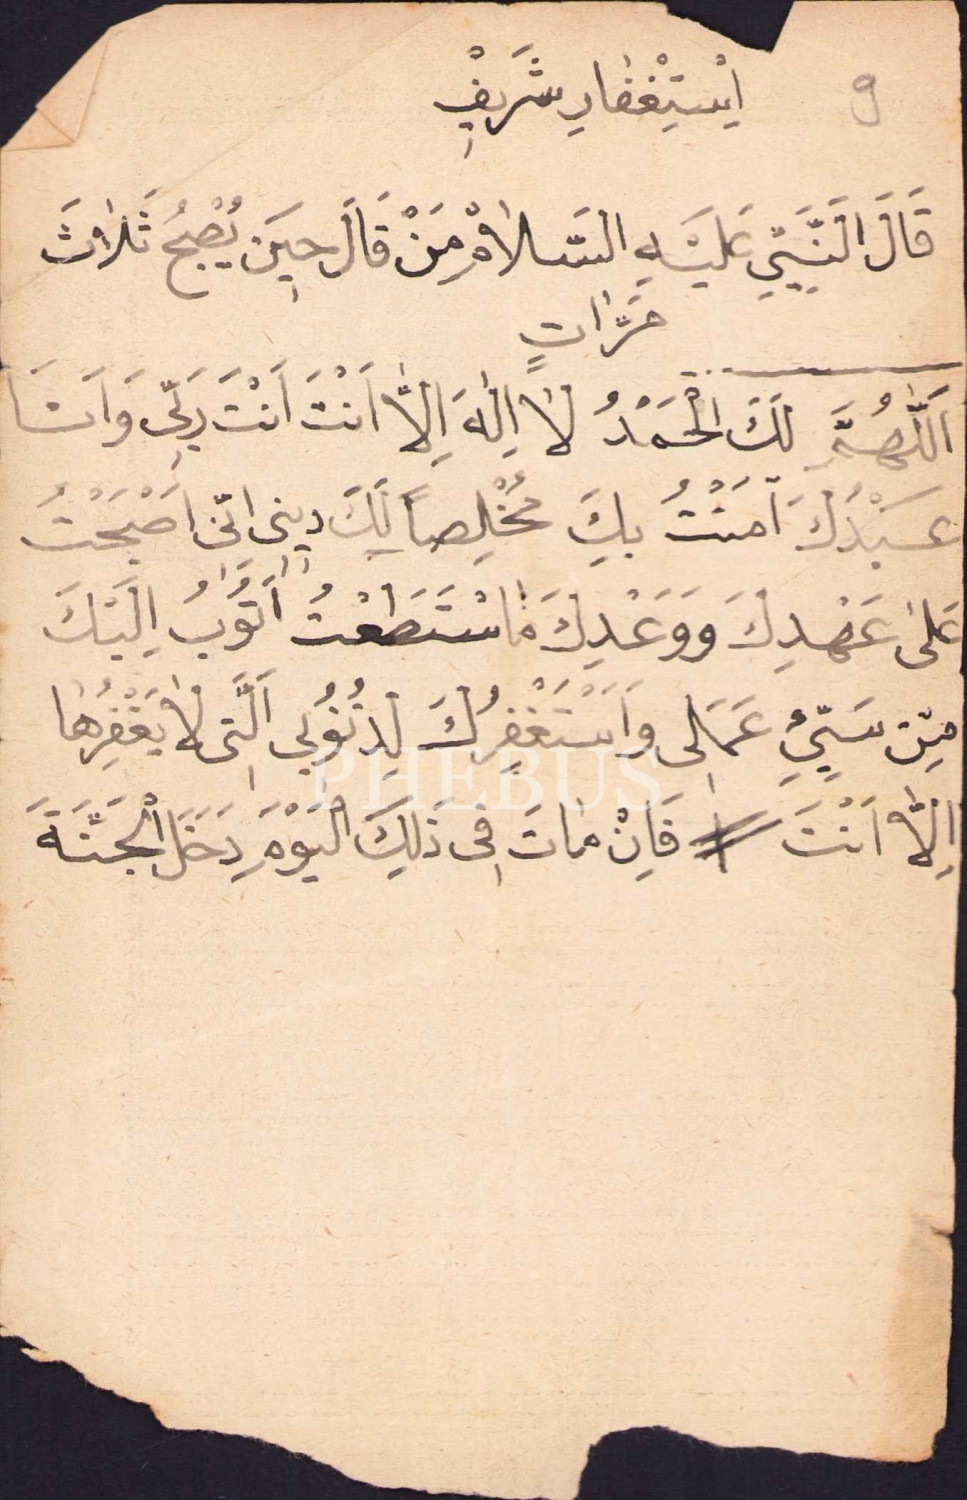 9
اِسْتِغْفٰارِ شَرِيفْ
قَالَ اَلنَّبِيِّ عَلَيْهِ السَّلٰامْ مَنْ قَالَ حِينَ يُصْبِحُ ثَلٰاثَ
مَرّٰاتٍ
اَللّٰهُمَّ لَكَ الْحَمْدُ لٰا اِلٰهَ اِلّٰا اَنْتَ اَنْتَ رَبِّى وَاَنَا
عَبْدُكَ اٰمَنْتُ بِكَ مُخْلِصاً لَكَ دِينِى اِنِّى اَصْبَحْتُ
عَلىٰ عَهْدِكَ وَوَعْدِكَ مَااسْتَطَعْتُ اَتُوبُ اِلَيْكَ
مِنْ سَيِّئِ عَمَلِى وَاَسْتَغْفِرُكَ لِذُنُوبِى اَلَّتِى لٰا يَغْفِرُهٰا
اِلّٰا اَنْتَ فَاِنْ مٰاتَ فِى ذٰلِكَ الْيَوْمَ دَخَلَ الْجَنَّةَ
PHEBUS